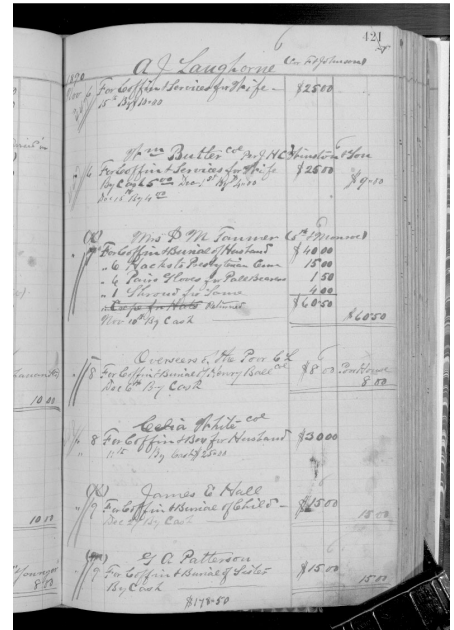 421
A J Langhorne
1890
Nov 6 For Coffin & Services for Wife - $25 00
15th By 10-00
Wm Butler col
6 For Coffin & Services for Wife $25 00
By Cash 5 00 Dec $9-10
Mrs P M Tanner 5th & Monroe
For Coffin & Burial of Husband $40 00
" 6 Hacks to Presbyterian Cem 15 00
" 6 Pairs Gloves for Pall Bearers 1 50
" 1 Shroud for Same 4 00
Returned $60-50
Nov 10th By Cash $60 50
Overseers of the Poor
8 For Coffin & Burial of Henry Ball col $8 00 Poor House
Dec 6th By Cash 8 00
10 00
Celia White col
8 For Coffin & Box for Husband $30 00
11th By Cash $25-00
James E Hall
9 For Coffin & Burial of Child - $15 00
Dec By Cash 15 00
10 00
G A Patterson
9 For Coffin & Burial of Sister $15 00
By Cash 15 00
8 00
$178-50